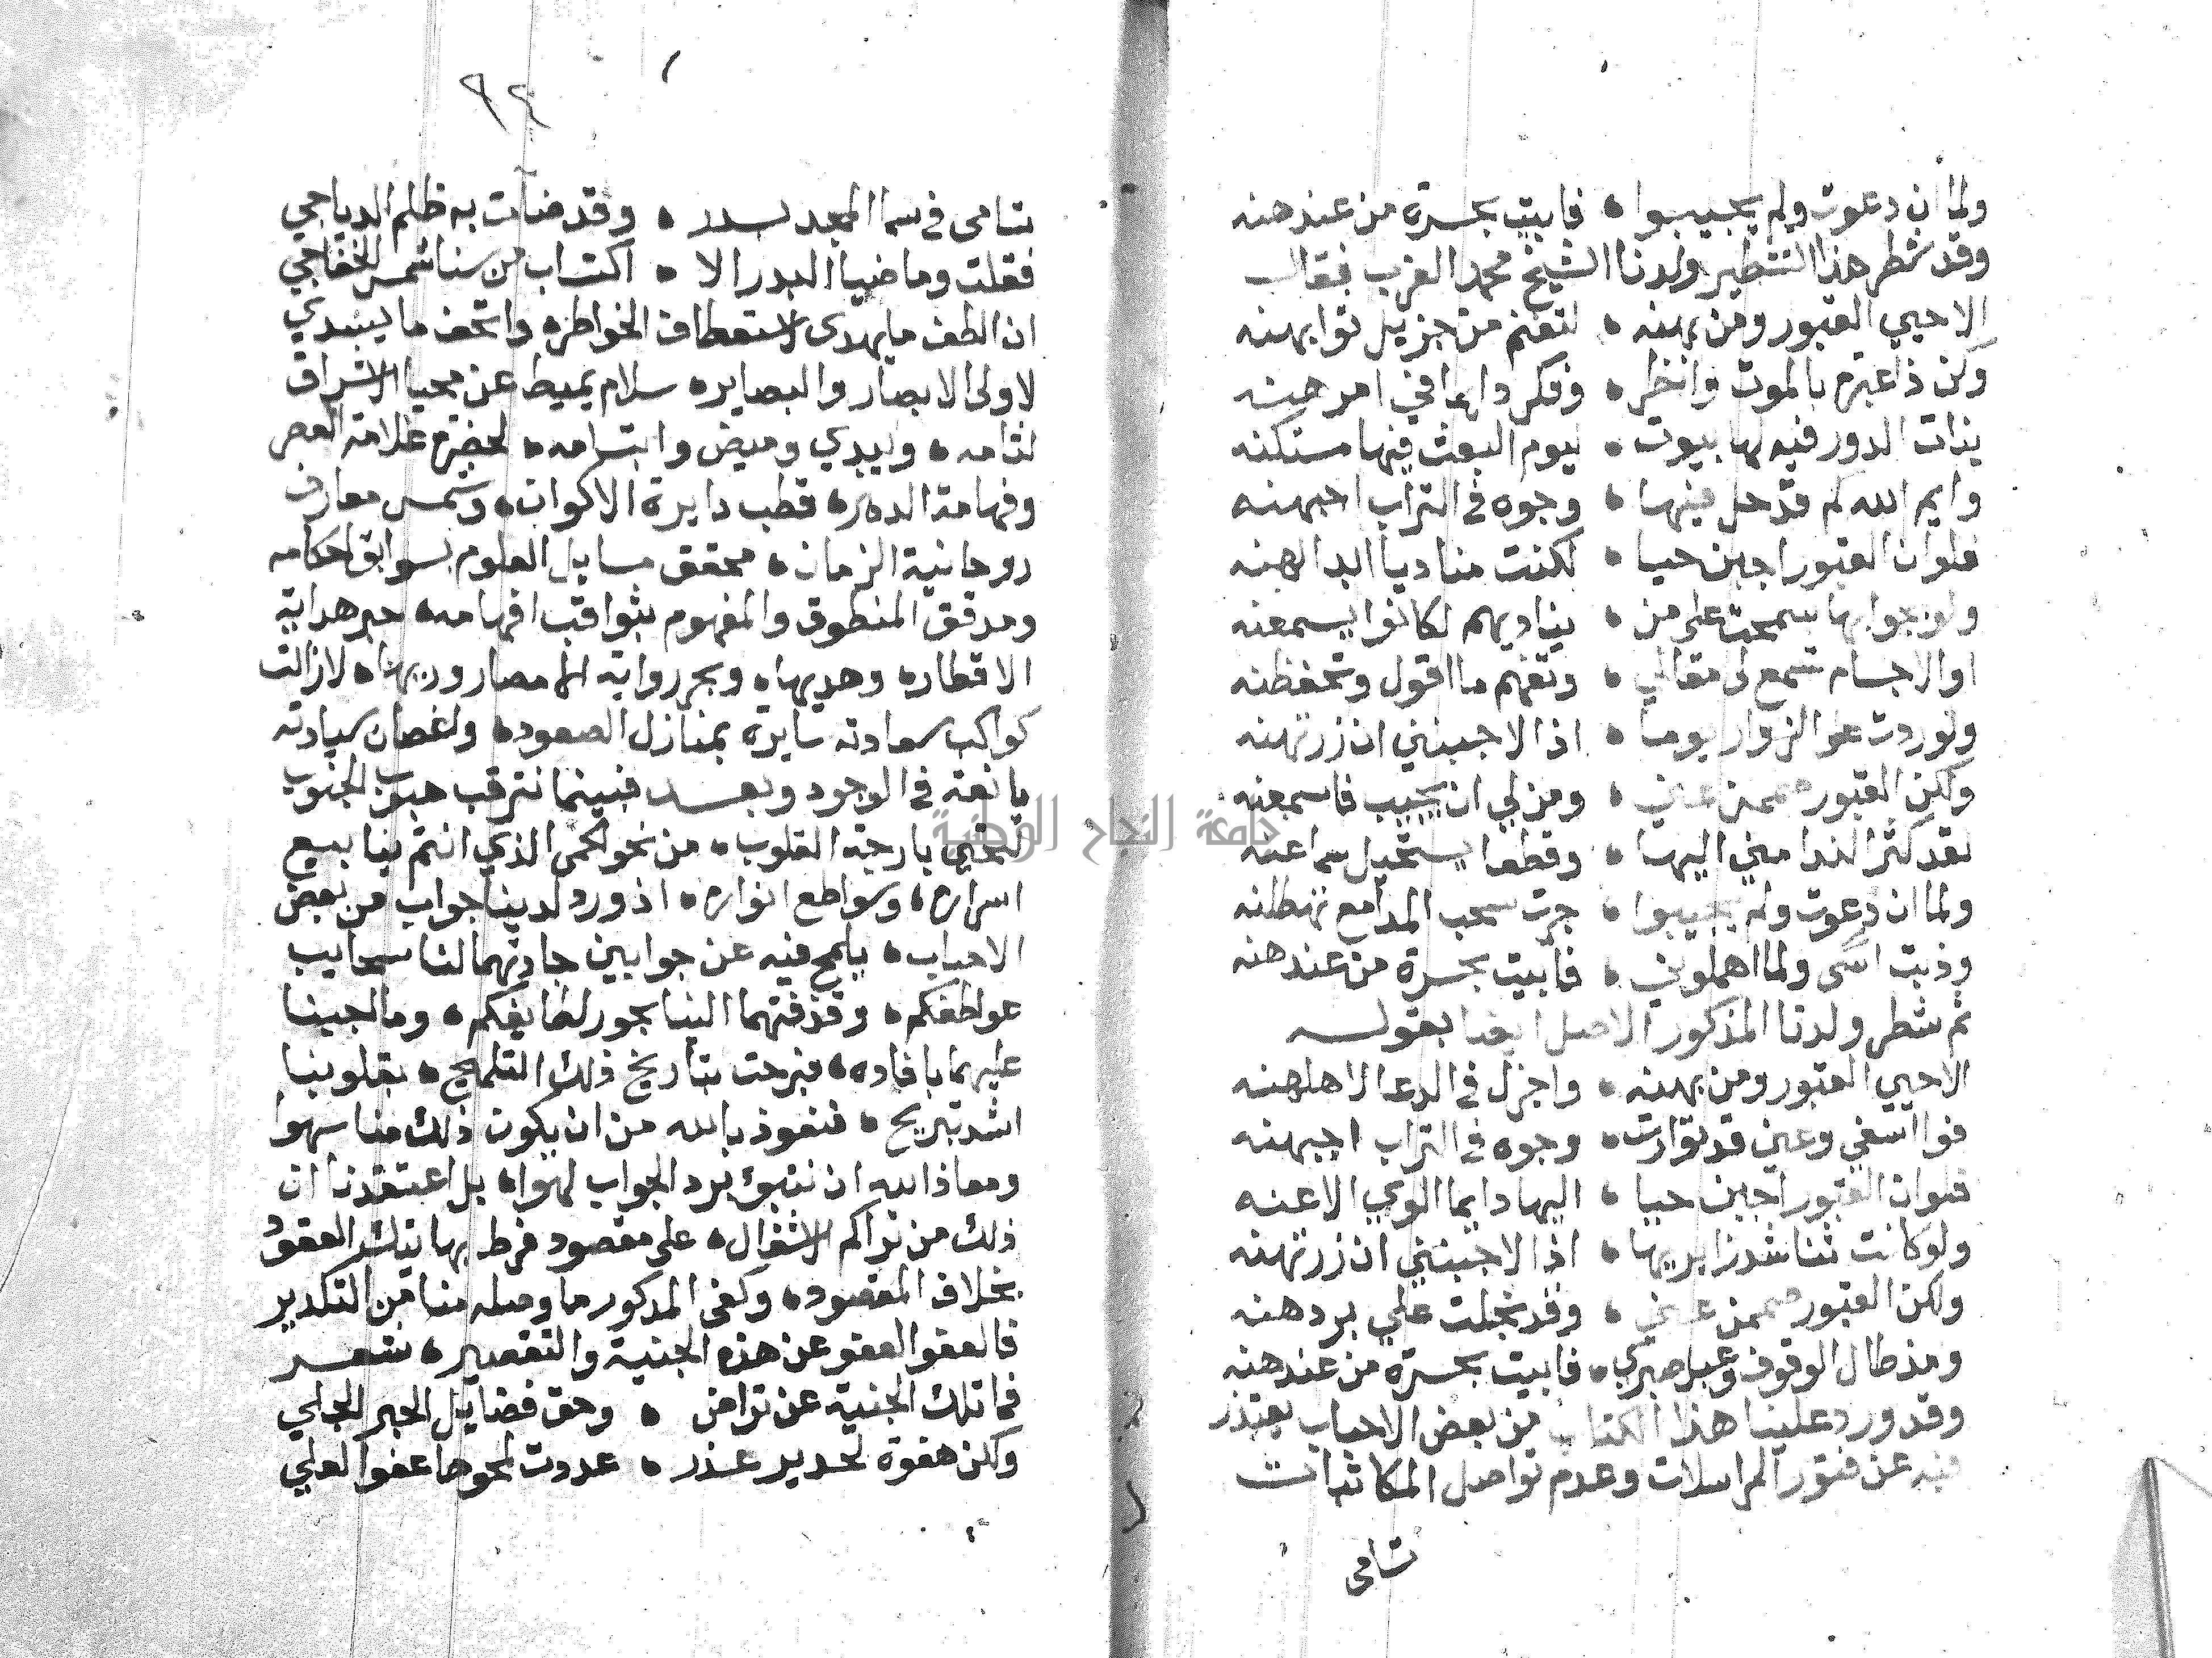 ولما ان دعوت ولم يجيبوا ٥ فابيت بحسرة من عندهنه
وقد شطر هذا التشطير ولدنا الشيخ محمد الغرب فقال
الا حيي القبور ومن بهنه ٥ لتغنم من جزيل ثوابهنه
وكن ذا عبرة بالموت وانظر ٥ وفكر دايما في امرهنه
بذات الدور فيه لها بيوت ٥ ليوم البعث فيها مستكنه
وايم الله كم قد حل فيها ٥ وجوه في التراب اجبهنه
فلوان القبور اجبن حيا ٥ لكنت مناديا ابدا لهنه
ولو بجوابها سمحت على من ٥ يناديهم لكانوا يسمعنه
اوالاجسام تسمع لي مقالي ٥ وتفهم ما اقول وتحفظنه
ولوردت على الزوار يوما ٥ اذا لاجبنني ان زرتهنه
ولكن القبور صممن عني ٥ ومن لي ان تجيب فاسمعنه
لقد كثر الندا مني اليها ٥ وقطعا يستحيل سماعنه
ولما ان دعوت ولم يجيبوا ٥ جرت سحب المدامع تهطلنه
وذبت اسى ولما اهملوني ٥ فابيت بحسرة من عندهنه
ثم شطر ولدنا المذكور الاصل ايضا بقوله
الا حيي القبور ومن بهنه ٥ واجزل في الدعا لاهلهنه
فوا اسفي وعين قد توارت ٥ وجوه في التراب اجبهنه
فلوان القبور اجبن حيا ٥ اليها دايما الوي الاعنه
ولو كانت تناشدنا بريها ٥ اذا لاجبنني ان زرتهنه
ولكن القبور صممن عني ٥ وقد بخلت علي بردهنه
ومذ طال الوقوف وعيل صبري ٥ فابيت بحسرة من عندهنه
وقد ورد علينا هذا الكتاب من بعض الاحباب يعتذر
فيه عن فتور المراسلات وعدم تواصل المكاتبات
تسامى
٩٤
تسامى في سما المجد بدر ٥ وقد ضات به ظلم الدياجي
فقلت وما ضيا البدر الا ٥ اكتساب من سنا شمس الخفاجي
ان الطف ما يهدى لاستعطاف الخواطر ٥ واتحف ما يبتدي
لاولى الابصار والبصاير ٥ سلام يميط عن محيا الاشراق
لثامه ٥ ويبدي وميض وابتسامه ٥ لحضرة علامة العصر
وفهامة الدهر ٥ قطب دايرة الاكوان ٥ وشمس معارف
روحانية الزمان ٥ محقق مسايل العلوم بسوابق احكامه
ومدقق المنطوق والمفهوم بثواقب افهامه ٥ حبر هداية
الاقطار ٥ وهديها ٥ وبحر رواية الامصار وريها ٥ لازالت
كواكب سعادته سايرة بمنازل الصعود ٥ واغصان سيادته
يانعة في الوجود وبعد فبينما نترقب هبوب الجنوب
لتحيي بارجته القلوب ٥ من نحو الحمى الذي انتم ينابيع
اسراره ٥ وسواطع انواره ٥ اذ ورد لدينا جواب من بعض
الاحباب ٥ يلمح فيه عن جوابين جادتهما لنا سحايب
عواطفكم ٥ وقذفتهما الينا بحور لطايفكم ٥ وما اجبنا
عليهما بافاده ٥ فبرحت بتاريخ ذلك التلميح ٥ بقلوبنا
اشد تبريح ٥ فنعوذ بالله من ان يكون ذلك منا سهوا
ومعاذ الله ان ننبوء برد الجواب لهوا ٥ بل اعتقدنا ان
ذلك من تراكم الاشغال ٥ على مقصود فرط بها تلك العقود
بخلاف المقصود ٥ وكفى المذكور ما وصله منا من التكدير
فالعفو العفو عن هذه الجنية والتقصير ٥ شعر
فما تلك الجنية عن تراض ٥ وحق فضايل الحبر الجلي
ولكن هفوة لحديد عذر ٥ عددت لمحوها عفو العلي
جامعة النجاح الوطنية